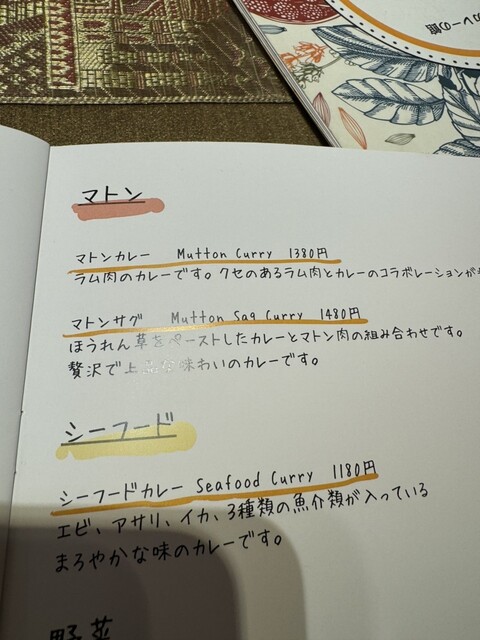 カレーの館
マトン
マトンカレー Mutton Curry 1380円
ラム肉のカレーです。クセのあるラム肉とカレーのコラボレーションが
マトンサグ Mutton Sag Curry 1480円
ほうれん草をペーストしたカレーとマトン肉の組み合わせです。
贅沢で上品な味わいのカレーです。
シーフード
シーフードカレー Seafood Curry 1180円
エビ、アサリ、イカ、3種類の魚介類が入っている
まろやかな味のカレーです。
野菜